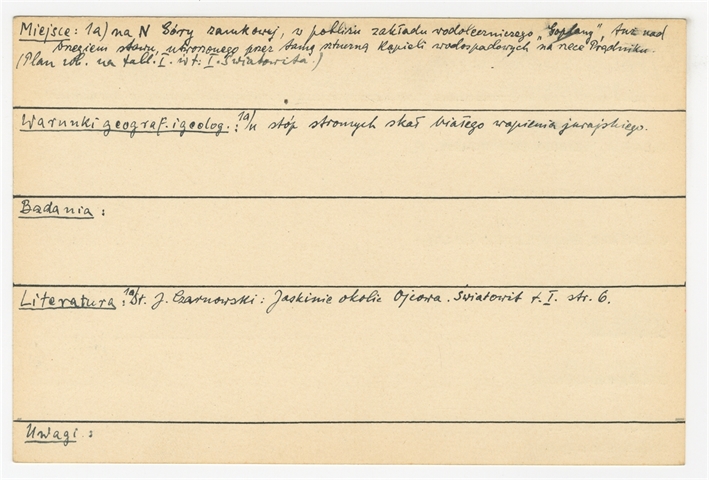 Miejsce: 1a) na N Góry zamkowej, w pobliżu zakładu wodoleczniczego "Goplany", tuż nad
brzegiem stawu, utworzonego przez tamę sztuczną kąpieli wodospadowych na rzece Prądniku.
(Plan zob. na tabl. I. w t. I. Światowita.)
Warunki geograf. i geolog.: 1a/ u stóp stromych skał białego wapienia jurajskiego.
Badania:
Literatura: 1a/ St. J. Czarnowski: Jaskinie okolic Ojcowa. Światowit t. I. str. 6.
Uwagi: